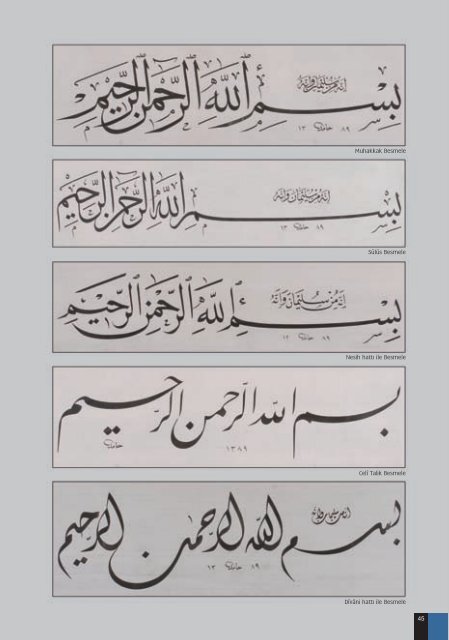 إنه من سليمان وإنه
بسم الله الرحمن الرحيم
حامد ١٣ ٨٩
Muhakkak Besmele
إنه من سليمان وإنه
بسم الله الرحمن الرحيم
حامد ١٣ ٨٩
Sülüs Besmele
إنه من سليمان وإنه
بسم الله الرحمن الرحيم
حامد ١٣ ٨٩
Nesih hattı ile Besmele
بسم الله الرحمن الرحيم
حامد ١٣٨٩
Celî Talik Besmele
إنه من سليمان وإنه
بسم الله الرحمن الرحيم
حامد ١٣ ٨٩
Dîvâni hattı ile Besmele
45